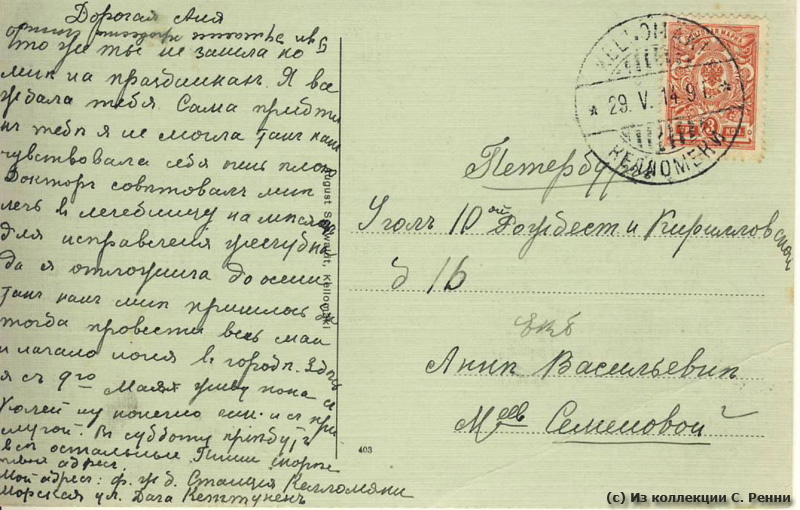 Дорогая Аня
что же ты не зашла ко
мнѣ на праздникахъ. Я все
ждала тебя. Сама прийти
къ тебѣ я не могла такъ какъ
чувствовала себя очень плохо
Докторъ совѣтовалъ мнѣ
лечь в лечебницу на мѣсяцъ
для исправленія желудка
да я отложила до осени
такъ какъ мнѣ пришлось бы
тогда провести весь май
и начало іюня въ городѣ. Здѣсь
я съ 9го Мая живу пока съ
Юлей ну конечно и съ при
слугой. Въ субботу пріѣдутъ
всѣ остальные Пиши скорѣе
адрес.
Мой адресъ: ф. ж д. Станція Келломяки
Морская ул. Дача Кеттуненъ
August S Kellomäki
403
KELLOMÄKI
* 29. V. 14 9 I. *
КЕЛЛОМЯКИ
МАРКА
3
Петербургъ
Уголъ 10ой Рождест и Кирилловской
д 16
Аннѣ Васильевнѣ
Семеновой
(c) Из коллекции С. Ренни